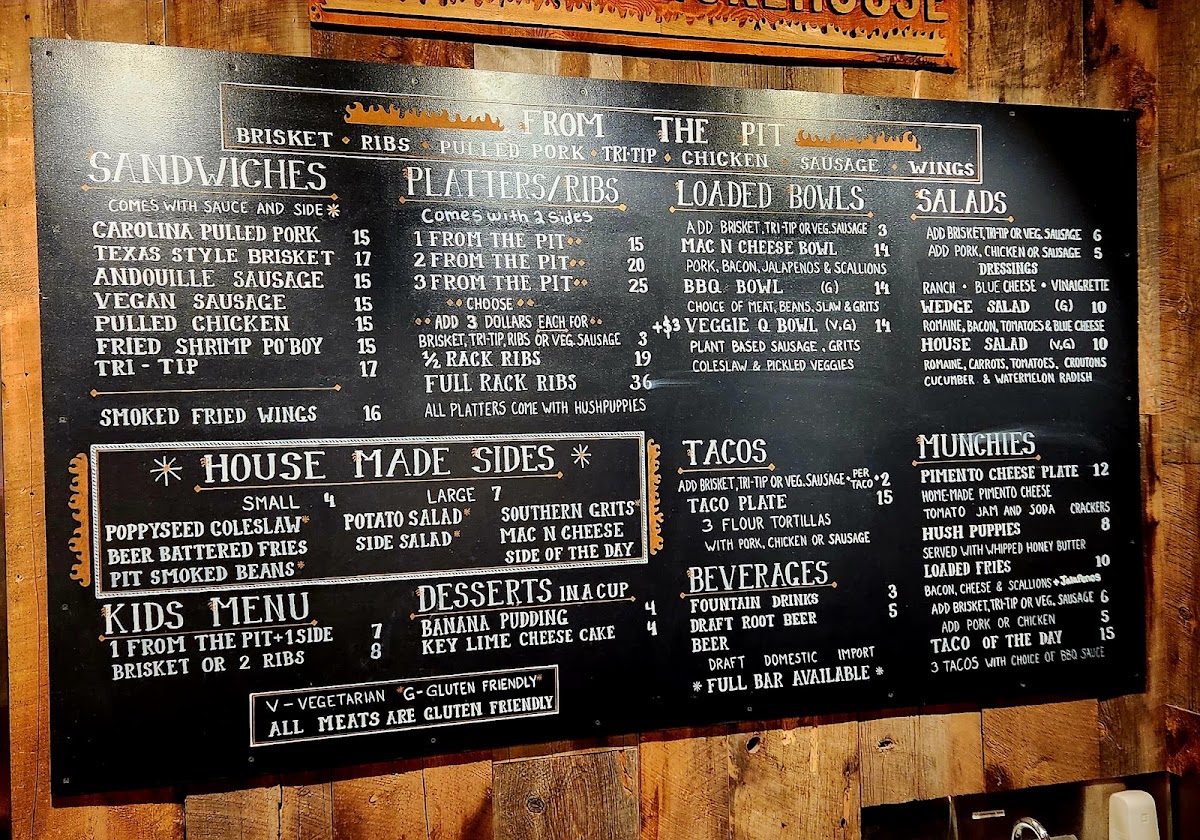 FROM THE PIT
BRISKET • RIBS • PULLED PORK • TRI-TIP • CHICKEN • SAUSAGE • WINGS
SANDWICHES
COMES WITH SAUCE AND SIDE*
CAROLINA PULLED PORK 15
TEXAS STYLE BRISKET 17
ANDOUILLE SAUSAGE 15
VEGAN SAUSAGE 15
PULLED CHICKEN 15
FRIED SHRIMP PO'BOY 15
TRI-TIP 17
SMOKED FRIED WINGS 16
PLATTERS/RIBS
Comes with 2 sides
1 FROM THE PIT•• 15
2 FROM THE PIT•• 20
3 FROM THE PIT•• 25
•• CHOOSE ••
•• ADD 3 DOLLARS EACH FOR ••
BRISKET, TRI-TIP, RIBS OR VEG. SAUSAGE 3
½ RACK RIBS 19
FULL RACK RIBS 36
ALL PLATTERS COME WITH HUSHPUPPIES
LOADED BOWLS
ADD BRISKET, TRI-TIP OR VEG. SAUSAGE 3
MAC N CHEESE BOWL 14
PORK, BACON, JALAPENOS & SCALLIONS
BBQ BOWL (G) 14
CHOICE OF MEAT, BEANS, SLAW & GRITS
+$3 VEGGIE Q BOWL (V,G) 14
PLANT BASED SAUSAGE, GRITS
COLESLAW & PICKLED VEGGIES
SALADS
ADD BRISKET, TRI-TIP OR VEG. SAUSAGE 6
ADD PORK, CHICKEN OR SAUSAGE 5
DRESSINGS
RANCH • BLUE CHEESE • VINAIGRETTE
WEDGE SALAD (G) 10
ROMAINE, BACON, TOMATOES & BLUE CHEESE
HOUSE SALAD (V,G) 10
ROMAINE, CARROTS, TOMATOES, CROUTONS
CUCUMBER & WATERMELON RADISH
* HOUSE MADE SIDES *
SMALL 4 LARGE 7
POPPYSEED COLESLAW*
BEER BATTERED FRIES
PIT SMOKED BEANS*
POTATO SALAD*
SIDE SALAD*
SOUTHERN GRITS*
MAC N CHEESE
SIDE OF THE DAY
KIDS MENU
1 FROM THE PIT + 1 SIDE 7
BRISKET OR 2 RIBS 8
DESSERTS IN A CUP
BANANA PUDDING 4
KEY LIME CHEESE CAKE 4
V - VEGETARIAN *G - GLUTEN FRIENDLY*
ALL MEATS ARE GLUTEN FRIENDLY
TACOS
ADD BRISKET, TRI-TIP OR VEG. SAUSAGE • PER TACO • 2
TACO PLATE 15
3 FLOUR TORTILLAS
WITH PORK, CHICKEN OR SAUSAGE
BEVERAGES
FOUNTAIN DRINKS 3
DRAFT ROOT BEER 5
BEER
DRAFT DOMESTIC IMPORT
* FULL BAR AVAILABLE *
MUNCHIES
PIMENTO CHEESE PLATE 12
HOME-MADE PIMENTO CHEESE
TOMATO JAM AND SODA CRACKERS
HUSH PUPPIES 8
SERVED WITH WHIPPED HONEY BUTTER
LOADED FRIES 10
BACON, CHEESE & SCALLIONS + Jalapenos
ADD BRISKET, TRI-TIP OR VEG. SAUSAGE 6
ADD PORK OR CHICKEN 5
TACO OF THE DAY 15
3 TACOS WITH CHOICE OF BBQ SAUCE